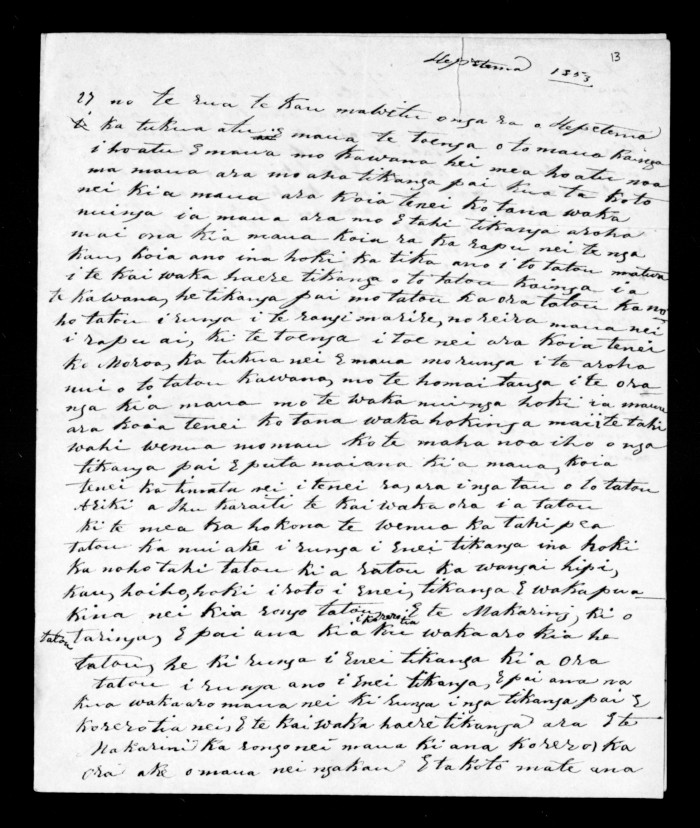 13
Hepetema 1853
27 no te rua te kau mawitu o nga ra o Hepetema
ka tukua atu E maua te toenga o to maua kainga
i hoatu E maua mo kawana hei mea hoatu noa
ma maua ara mo aha tikanga pai kua ta koto
nei ki a maua ara koia tenei ko tana waka
nuinga ia maua ara mo E tahi tikanga aroha
mai ona kia maua koia ra ka rapu nei te nga
kau, koia ano ina hoki ka tika ano i to tatou matua
i te kai waka haere tikanga o to tatou kainga i a
te kawana, he tikanga pai mo tatou ka ora tatou ka no
ho tatou i runga i te rangimarire, no reira maua nei
i rapu ai, ki te toenga i toe nei ara koia tenei
ko Moroa, ka tukua nei E maua mo runga i te aroha
nui o to tatou kawana, mo te homai tanga i te ora
nga kia maua mo te waka nuinga hoki ia maua
ara koia tenei ko tana waka hokinga mai i te tahi
wahi wenua mo mau ko te maha noa iho o nga
tikanga pai E puta mai ana ki a maua, koia
tenei ka timata nei i tenei ra, ara i nga tau o to tatou
Ariki a Ihu karaiti te kai waka ora i a tatou
ki te mea ka hokona te wenua ka tahi pea
tatou ka nui ake i runga i Enei tikanga ina hoki
ka noho tahi tatou ki a ratou ka wangai hipi,
kau, hoiho, hoki i roto i Enei, tikanga E waka pua
kina nei kia rongo tatou, E te Makarini, ki o
tatou taringa, E pai ana kia ku i korerotia waka aro kia he
tatou, he ki runga i Enei tikanga ki a ora
tatou i runga ano i Enei tikanga, E pai ana na
kua waka aro maua nei ki runga i nga tikanga pai E
korerotia nei, E te kai waka haere tikanga ara E te
Makarini ka rongo nei maua ki ana korero, ka
ora ake o maua nei ngakau E takoto mate ana